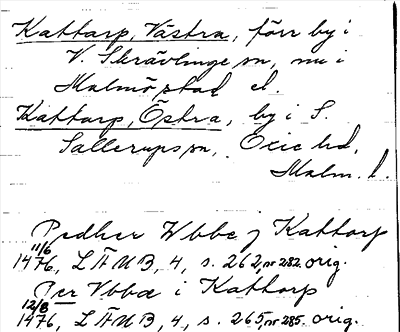 Kattarp, Västra, förr by i
V. Skrävlinge sn, nu i
Malmö stad el.
Kattarp, Östra, by i S.
Sallerups sn, Oxie hd,
Malm. l.
Pedher Wbbe j Kattorp
11/6 1476, LÄUB, 4, s. 262, nr 282. orig.
Per Vbbæ i Kattorp
12/8 1476, LÄUB, 4, s. 265, nr 285. orig.